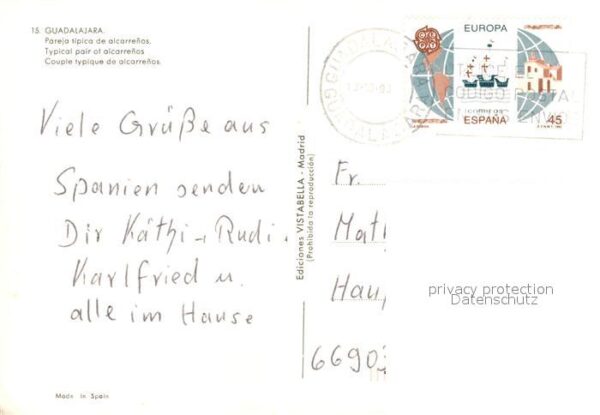 15. GUADALAJARA.
Pareja típica de alcarreños.
Typical pair of alcarreños
Couple typique de alcarreños.
EUROPA
CORREOS
ESPAÑA
45
GUADALAJARA
CODIGO POSTAL
Viele Grüße aus
Spanien senden
Dir Käthi - Rudi.
Karlfried u.
alle im Hause
Ediciones VISTABELLA - Madrid
(Prohibida la reproducción)
Fr.
Mat
Hau
6690
privacy protection
Datenschutz
Made in Spain